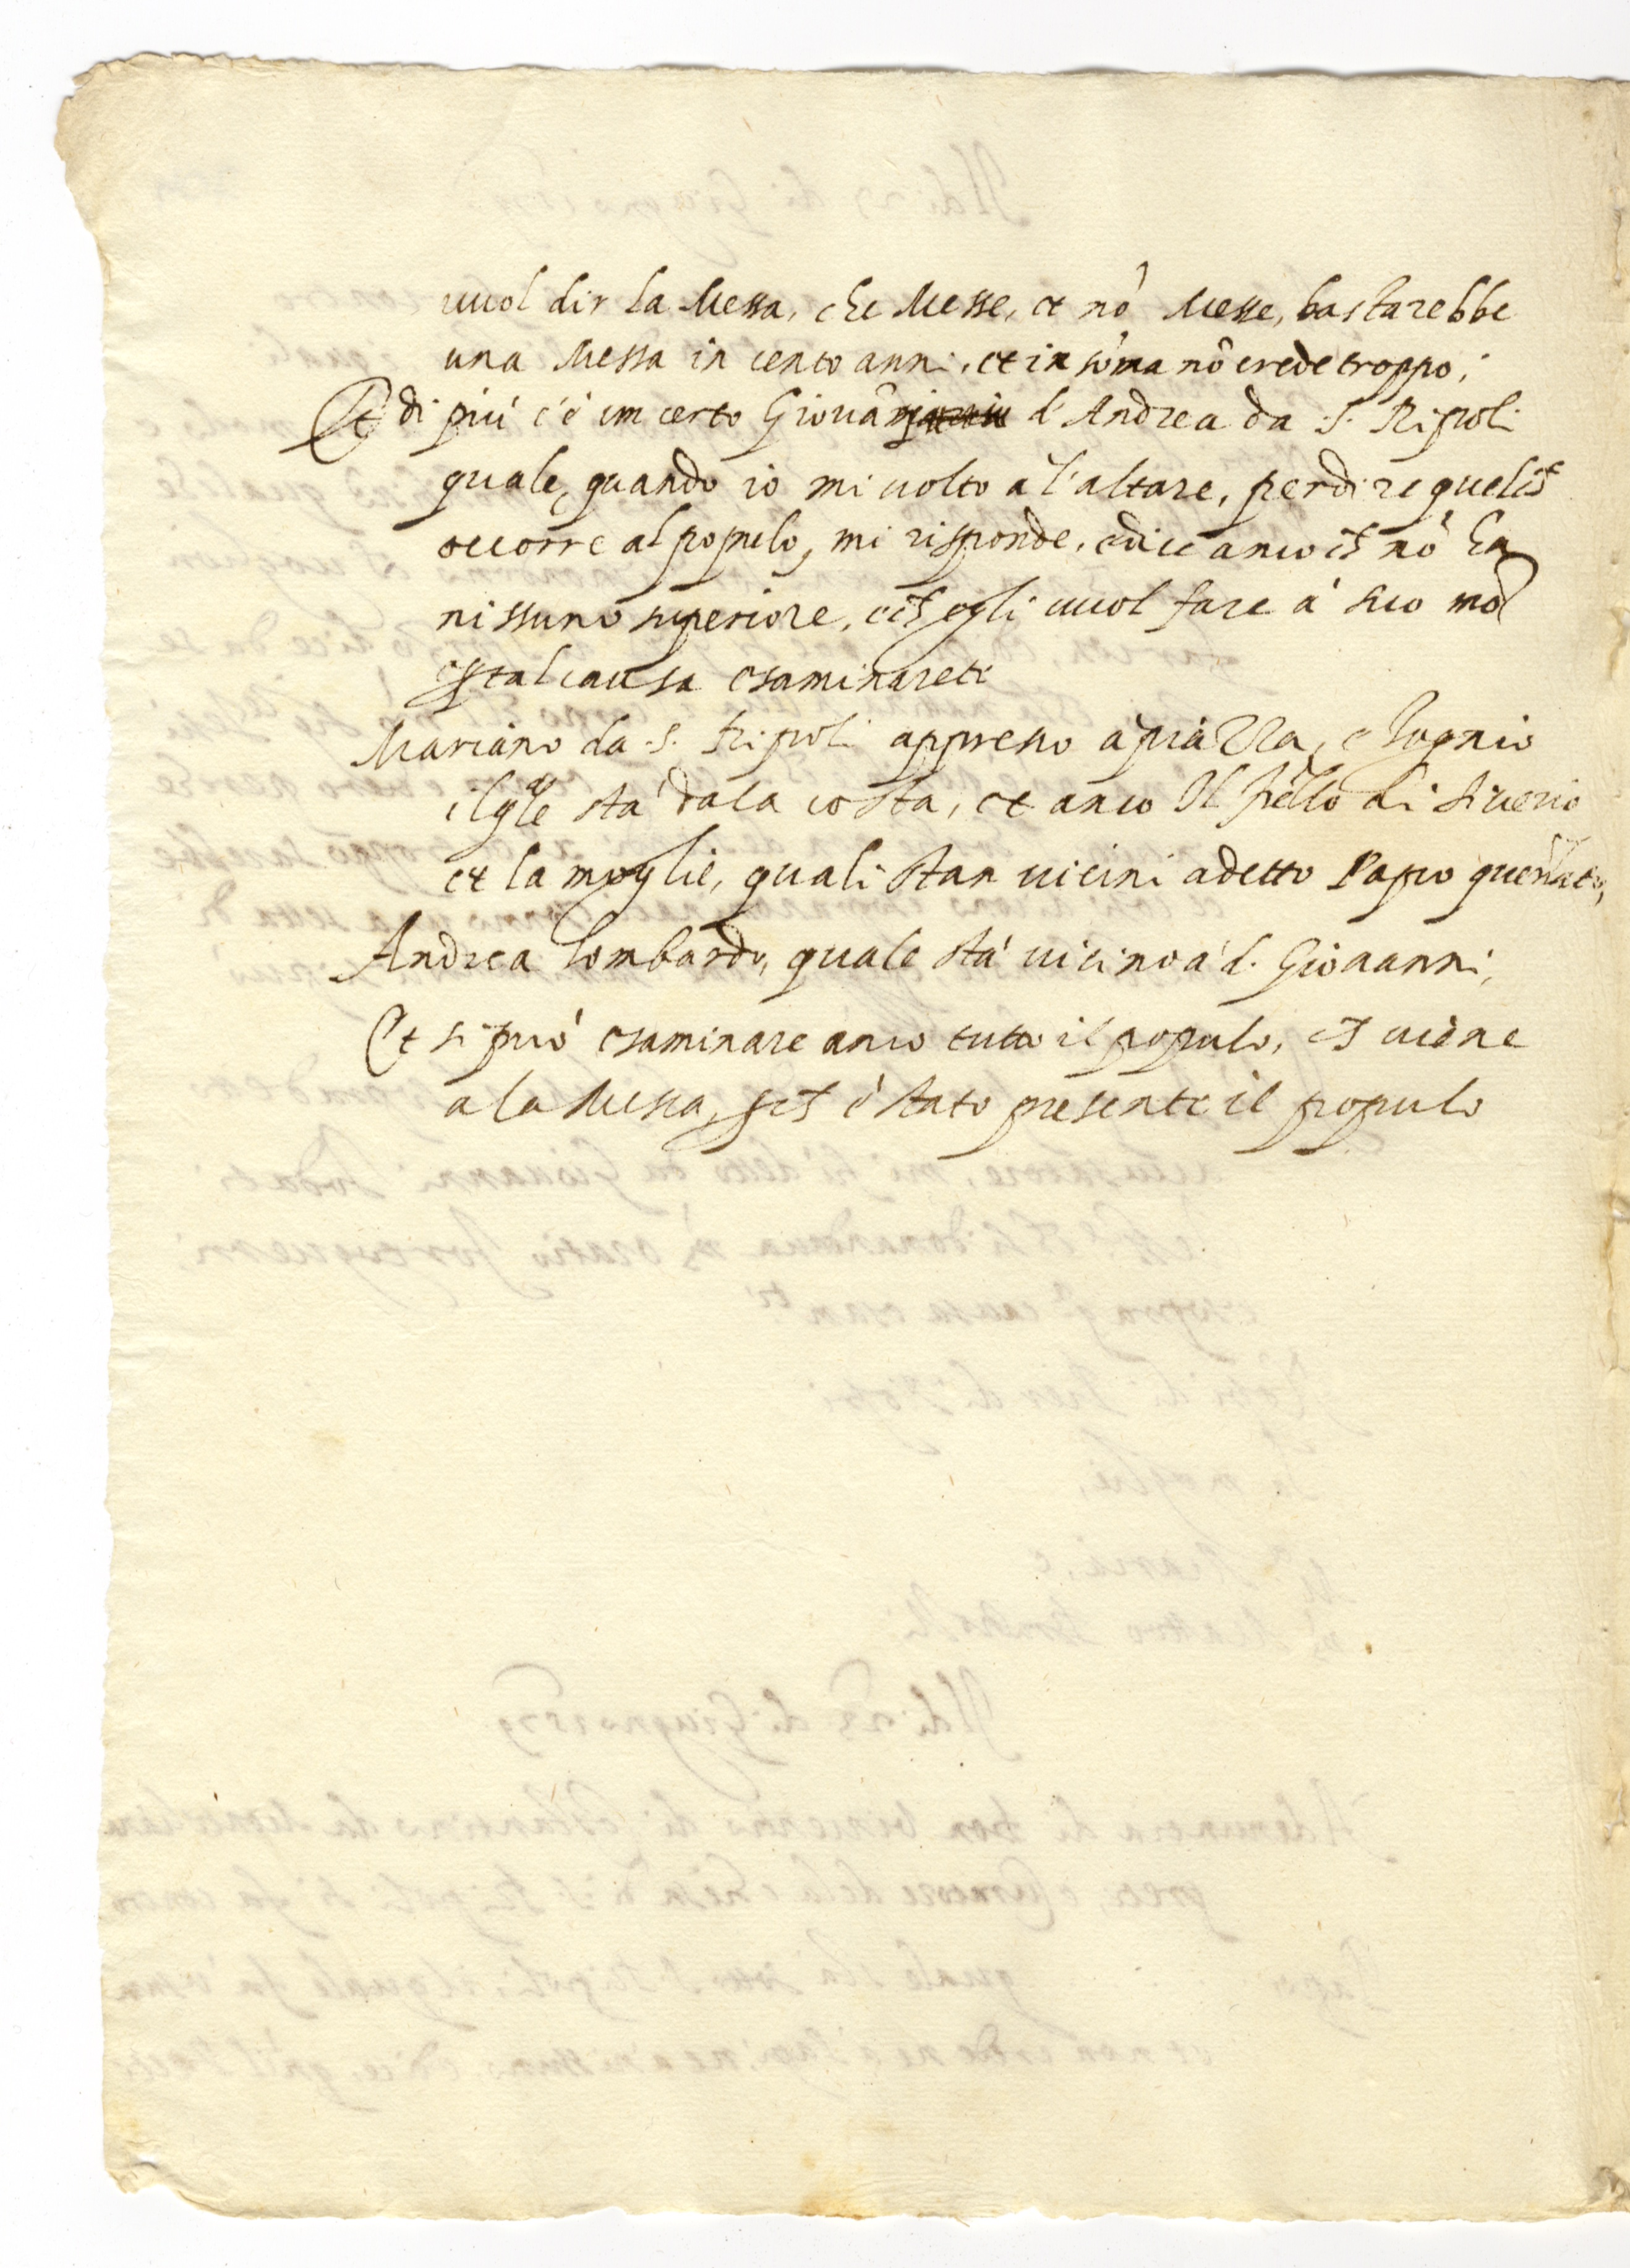 vuol dir la Messa, che Messe, et nō Messe, bastarebbe
una Messa in cento anni, et in sōma nō crede troppo,
Et di piu' c'e' un certo Giouān d'Andrea da S. Ripoli
quale, quando io mi uolto a l'altare, per dire quel ch
occorre al populo, mi risponde, e dice anco ch nō ha
nissuno superiore, e ch egli vuol fare a' suo mod
tal causa esaminareti
Mariano da S. Ripoli appresso a piazza, e
il qle sta' da la costa, et anco Il frello di
et la moglie, quali stan uicini a detto Papo
Andrea lombardo, quale sta' uicino a' d. Giouanni,
Et si puo' esaminare anco tutto il populo, ch uiene
a la Messa, ch e' stato presente il populo